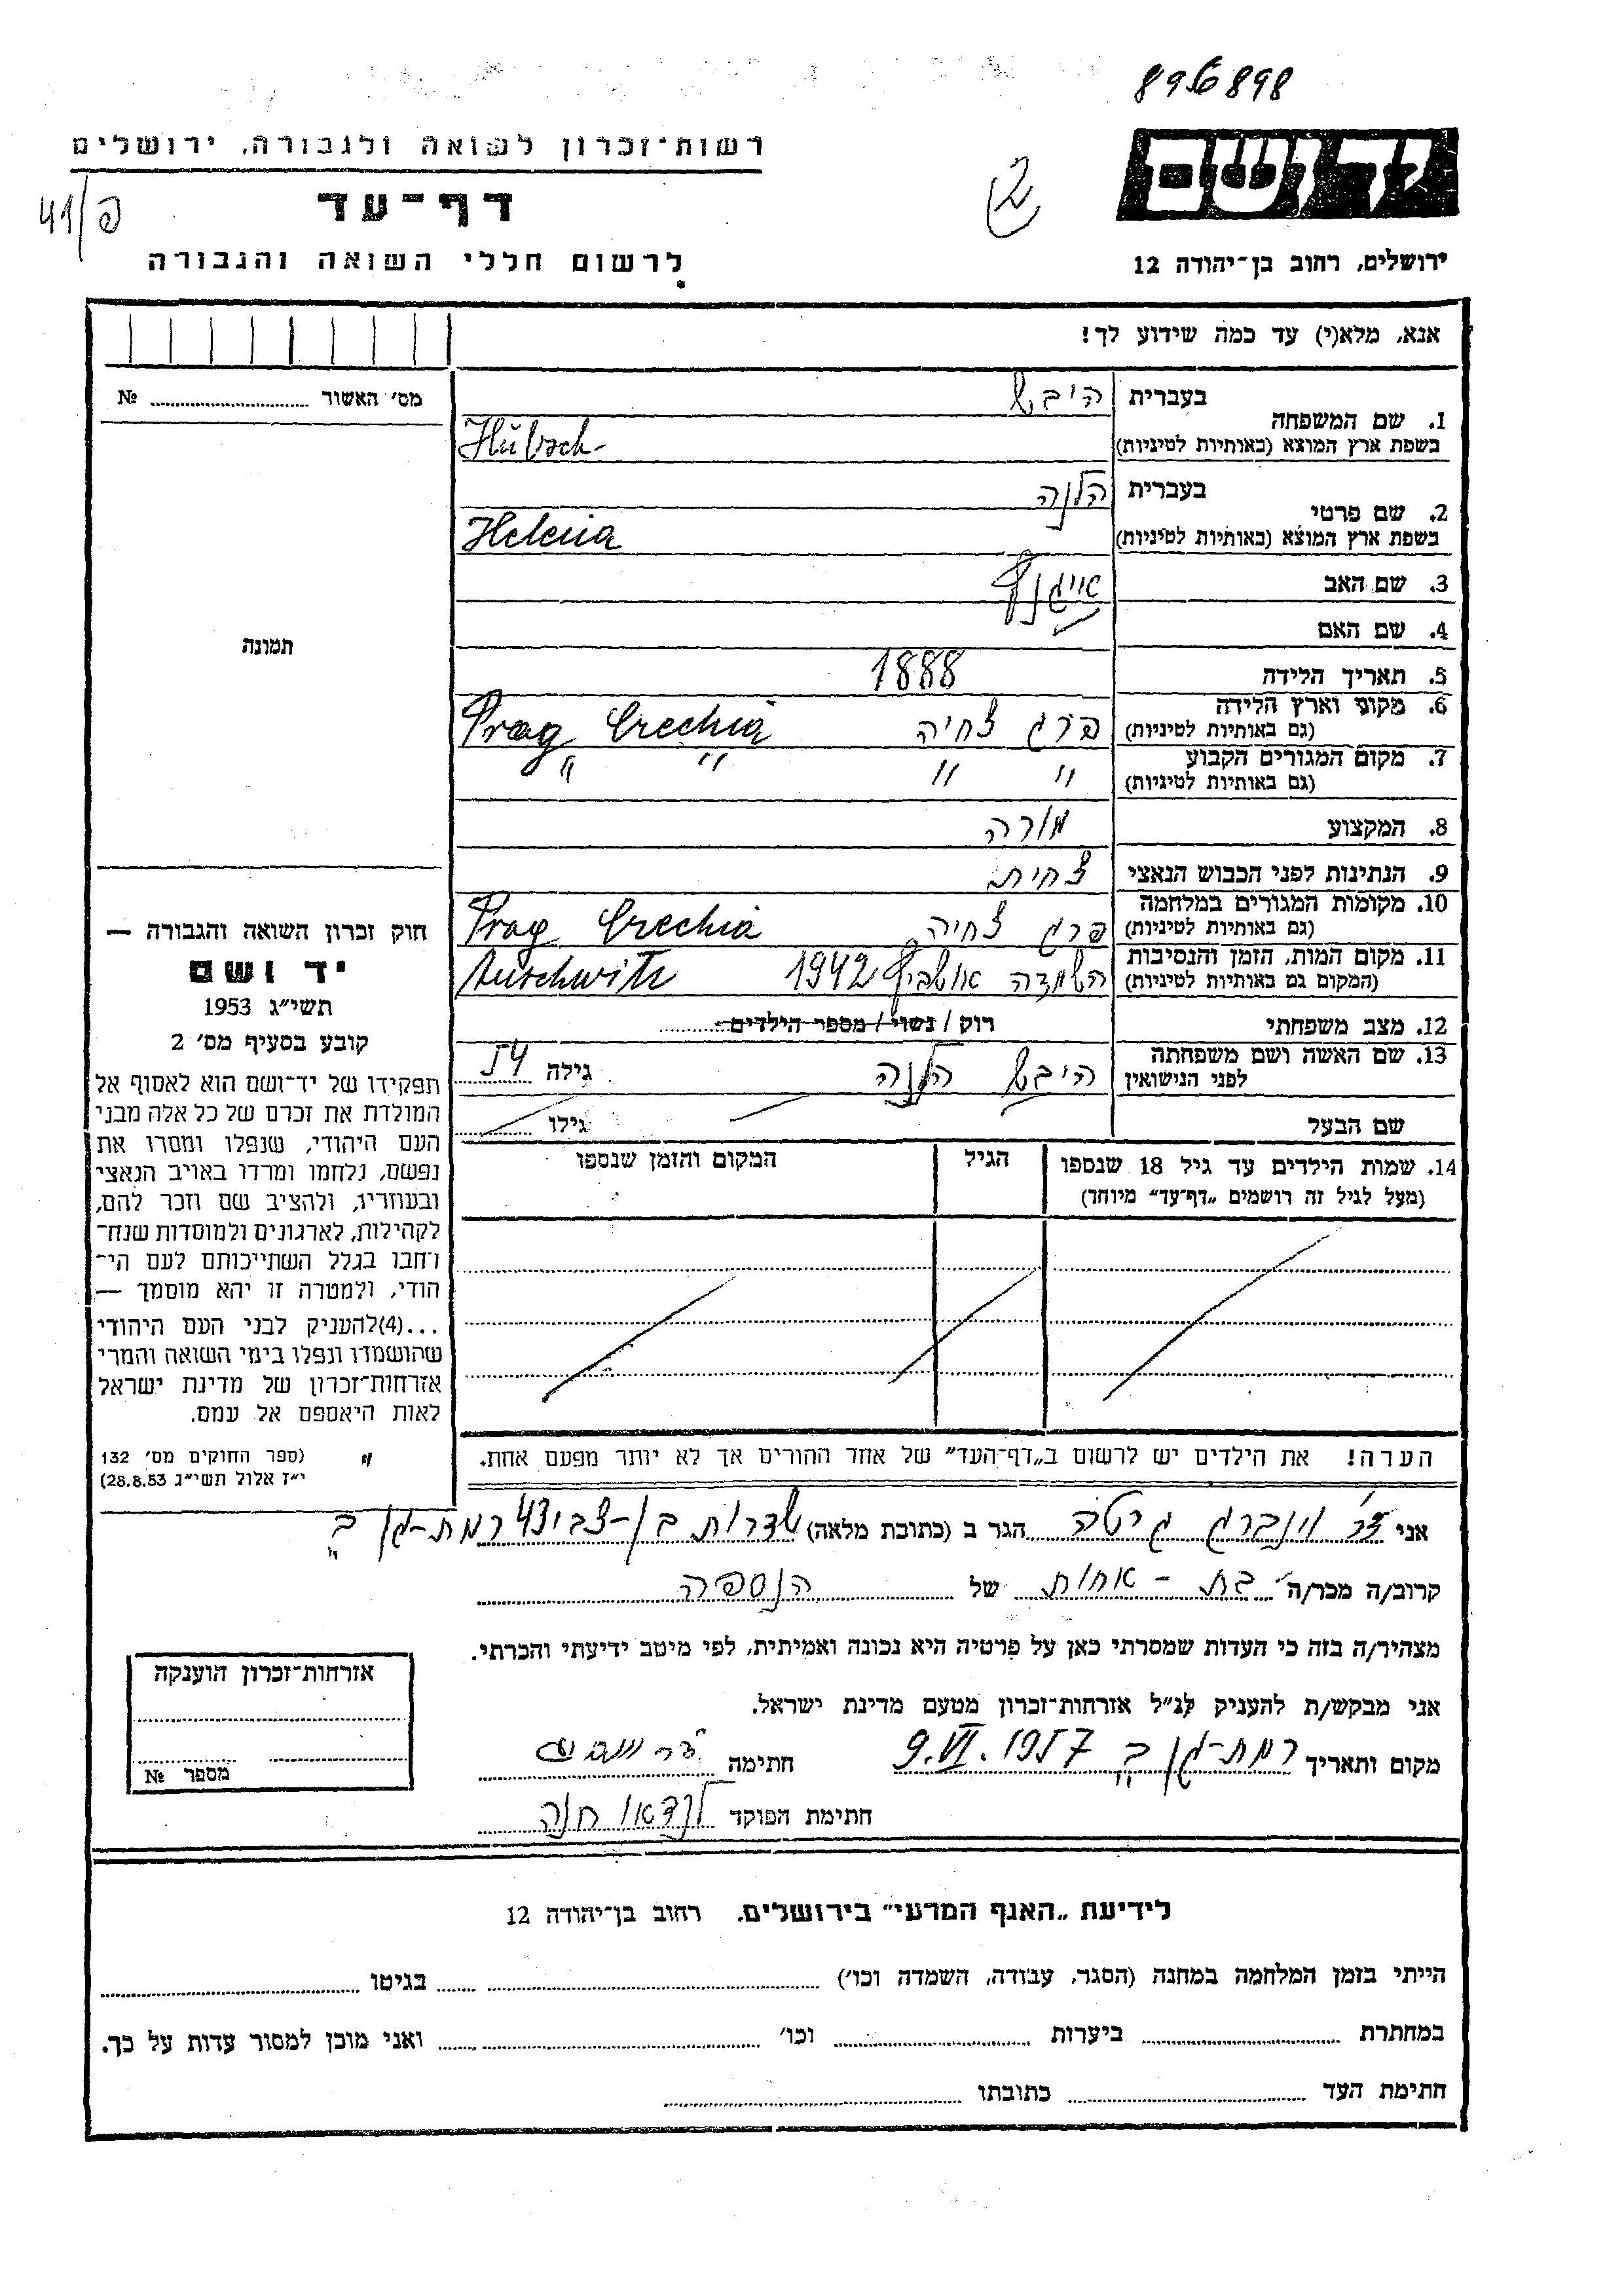 898 968
רשות־זכרון לשואה ולגבורה, ירושלים
יד ושם
דף־עד
41/פ
לרשום חללי השואה והגבורה
ירושלים, רחוב בן־יהודה 12
אנא, מלא(י) עד כמה שידוע לך!
מס׳ האשור № 
תמונה
חוק זכרון השואה והגבורה —
יד ושם
תשי״ג 1953
קובע בסעיף מס׳ 2
תפקידו של יד־ושם הוא לאסוף אל
המולדת את זכרם של כל אלה מבני
העם היהודי, שנפלו ומסרו את
נפשם, נלחמו ומרדו באויב הנאצי
ובעוזריו, ולהציב שם וזכר להם,
לקהילות, לארגונים ולמוסדות שנח־
רבו בגלל השתייכותם לעם הי־
הודי, ולמטרה זו יהא מוסמך —
...(4)להעניק לבני העם היהודי
שהושמדו ונפלו בימי השואה והמרי
אזרחות־זכרון של מדינת ישראל
לאות היאספם אל עמם.
(ספר החוקים מס׳ 132
י״ז אלול תשי״ג 28.8.53)
1. שם המשפחה בעברית היבש
בשפת ארץ המוצא (באותיות לטיניות) Hübsch
2. שם פרטי בעברית הלנה
בשפת ארץ המוצא (באותיות לטיניות) Helena
3. שם האב
4. שם האם
5. תאריך הלידה 1888
6. מקום וארץ הלידה
(גם באותיות לטיניות) פרג צ׳חיה Prag Czechia
7. מקום המגורים הקבוע " " " "
(גם באותיות לטיניות)
8. המקצוע מורה
9. הנתינות לפני הכבוש הנאצי צ׳חית
10. מקומות המגורים במלחמה
(גם באותיות לטיניות) פרג צ׳חיה Prag Czechia
11. מקום המות, הזמן והנסיבות
(המקום גם באותיות לטיניות) השמדה אושביץ 1942 Auschwitz
12. מצב משפחתי רווק / נשוי / מספר הילדים
13. שם האשה ושם משפחתה
לפני הנישואין היבש הלנה גילה 54
שם הבעל גילו
14. שמות הילדים עד גיל 18 שנספו הגיל המקום והזמן שנספו
(מעל לגיל זה רושמים „דף־עד״ מיוחד)
הערה! את הילדים יש לרשום ב„דף־העד״ של אחד ההורים אך לא יותר מפעם אחת.
אני ד״ר וינברג גיטה הגר ב (כתובת מלאה) שדרות בן-צבי 43 רמת-גן ב׳
קרוב/ה מכר/ה בת - אחות של הנספה
מצהיר/ה בזה כי העדות שמסרתי כאן על פרטיה היא נכונה ואמיתית, לפי מיטב ידיעתי והכרתי.
אני מבקש/ת להעניק לנ״ל אזרחות־זכרון מטעם מדינת ישראל.
מקום ותאריך רמת-גן ב׳ 9.VI.1957 חתימה
חתימת הפוקד לנדאו חנה
אזרחות־זכרון הוענקה
מספר №
לידיעת „האגף המדעי״ בירושלים. רחוב בן־יהודה 12
הייתי בזמן המלחמה במחנה (הסגר, עבודה, השמדה וכו׳) בגיטו
במחתרת ביערות וכו׳ ואני מוכן למסור עדות על כך.
חתימת העד כתובתו